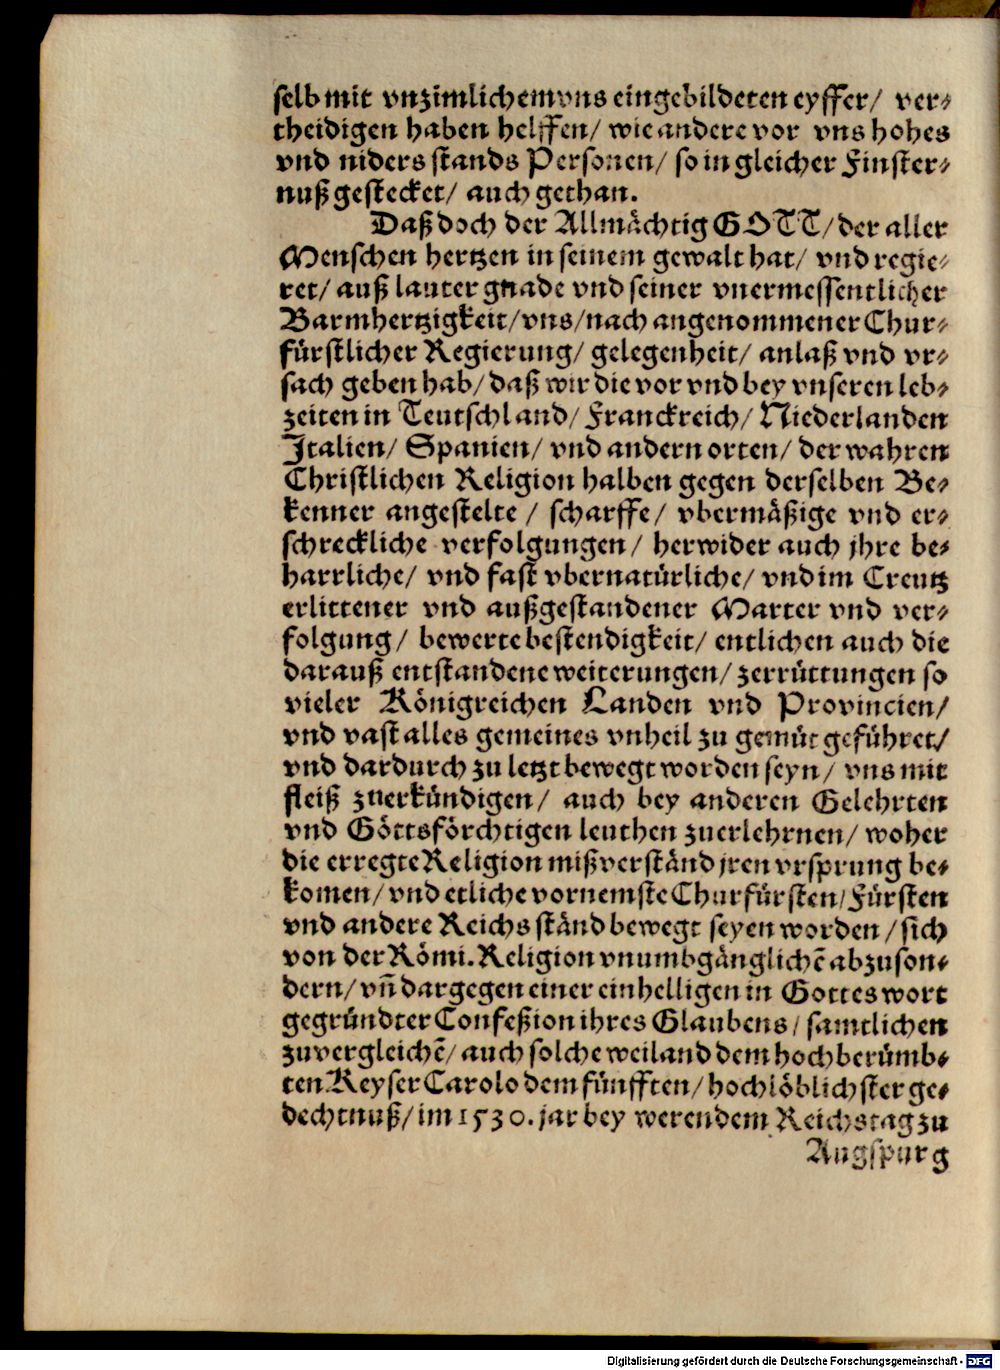 selb mit vnzimlichem vns eingebildeten eyffer/ ver⸗
theidigen haben helffen/ wie andere vor vns hohes
vnd niders stands Personen/ so in gleicher Finster⸗
nuß gestecket/ auch gethan.
Daß doch der Allmächtig GOTT/ der aller
Menschen hertzen in seinem gewalt hat/ vnd regie⸗
ret/ auß lauter gnade vnd seiner vnermessentlicher
Barmhertzigkeit/ vns/ nach angenommener Chur⸗
fürstlicher Regierung/ gelegenheit/ anlaß vnd vr⸗
sach geben hab/ daß wir die vor vnd bey vnseren leb⸗
zeiten in Teutschland/ Franckreich/ Niederlanden
Italien/ Spanien/ vnd andern orten/ der wahren
Christlichen Religion halben gegen derselben Be⸗
kenner angestelte / scharffe/ vbermäßige vnd er⸗
schreckliche verfolgungen/ herwider auch jhre be⸗
harrliche/ vnd fast vbernatürliche/ vnd im Creutz
erlittener vnd außgestandener Marter vnd ver⸗
folgung/ bewerte bestendigkeit/ entlichen auch die
darauß entstandene weiterungen/ zerrüttungen so
vieler Königreichen Landen vnd Provincien/
vnd vast alles gemeines vnheil zu gemüt geführet/
vnd dardurch zu letzt bewegt worden seyn/ vns mit
fleiß zuerkündigen/ auch bey anderen Gelehrten
vnd Göttsförchtigen leuthen zuerlehrnen/ woher
die erregte Religion mißverständ jren vrsprung be⸗
komen/ vnd etliche vornemste Churfürsten/ Fürsten
vnd andere Reichs ständ bewegt seyen worden / sich
von der Römi. Religion vnumbgänglichē abzuson⸗
dern/ vñ dargegen einer einhelligen in Gottes wort
gegründter Confeßion ihres Glaubens/ samtlichen
zuvergleichē/ auch solche weiland dem hochberümb⸗
ten Keyser Carolo dem fünfften/ hochlöblichster ge⸗
dechtnuß/ im 1530. jar bey werendem Reichstag zu
Augspurg
Digitalisierung gefördert durch die Deutsche Forschungsgemeinschaft - DFG